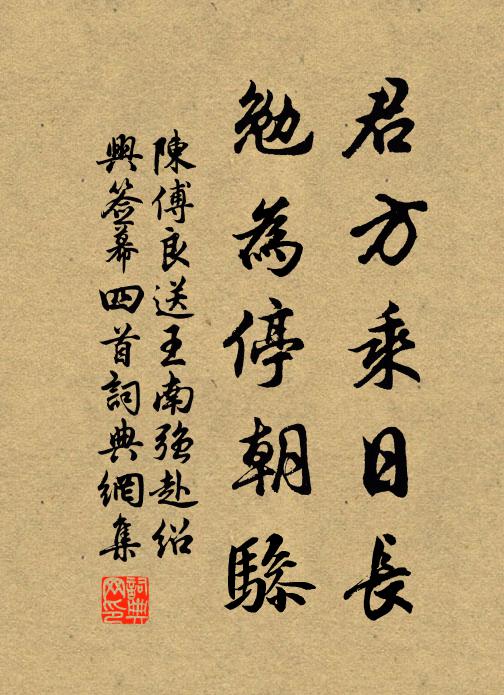 君方乘日長
勉為停朝驂
陳傅良送王南強赴紹
興簽幕四首詞典網集
詞典
网印